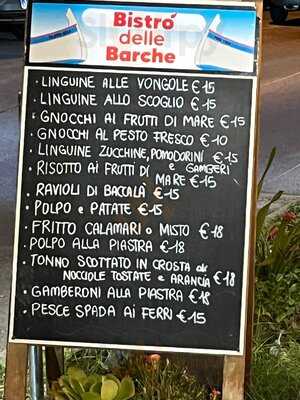 Bistrò
delle
Barche
· LINGUINE ALLE VONGOLE €15
· LINGUINE ALLO SCOGLIO €15
· GNOCCHI AI FRUTTI DI MARE €15
· GNOCCHI AL PESTO FRESCO €10
· LINGUINE ZUCCHINE, POMODORINI e GAMBERI €15
· RISOTTO AI FRUTTI DI
MARE €15
· RAVIOLI DI BACCALÀ €15
· POLPO e PATATE €15
· FRITTO CALAMARI o MISTO €18
· POLPO ALLA PIASTRA €18
· TONNO SCOTTATO IN CROSTA di
NOCCIOLE TOSTATE e ARANCIA €18
· GAMBERONI ALLA PIASTRA €18
· PESCE SPADA AI FERRI €15